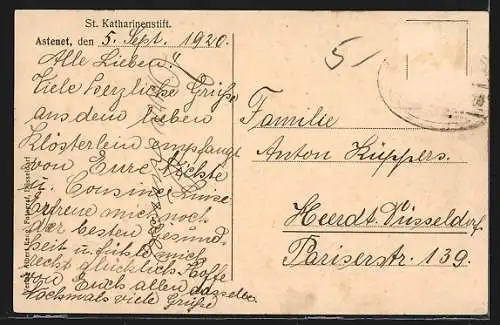 St. Katharinenstift.
Astenet, den 5. Sept. 1920.
Alle Lieben!
Viele herzliche Grüße
aus dem lieben
Klösterlein empfangt
von Eure Nichte
u. Cousine Luise
erfreue mich noch
der besten Gesund-
heit u. fühle mich
recht glücklich Hoffe
von Euch allen dasselbe
Nochmals viele Grüße
5-
Familie
Anton Küppers.
Heerdt. Düsseldorf
Pariserstr. 139.